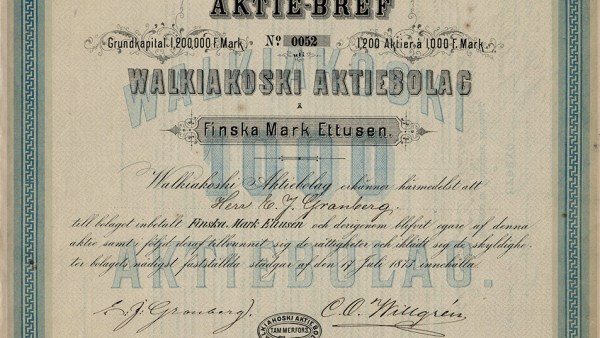 AKTIE-BREF
Grundkapital 1,200,000 F. Mark. No 0052 1,200 Aktier à 1,000 F. Mark.
uti
WALKIAKOSKI AKTIEBOLAG
WALKIAKOSKI
À
Finska Mark Ettusen.
1000
Walkiakoski Aktiebolag erkänner härmedelst att
Herr E. J. Granberg.
till bolaget inbetalt Finska Mark Ettusen och derigenom blifvit egare af denna
aktie samt i följd deraf tillvunnit sig de rättigheter och iklädt sig de skyldighe-
ter bolagets nådigst fastställda stadgar af den 17 Juli 1873 innehålla.
AKTIEBOLAG.
E. J. Granberg. C. O. Willgrén
WALKIAKOSKI AKTIEBOL
TAMMERFORS